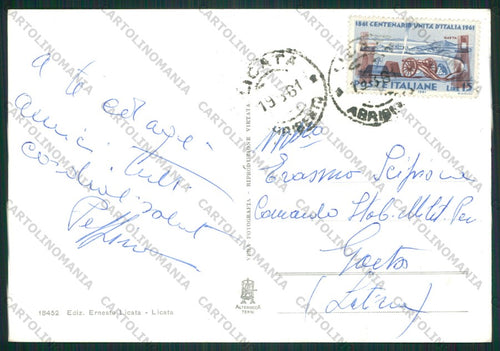 1861 CENTENARIO UNITÀ D'ITALIA 1961
GAETA
POSTE ITALIANE LIRE 15
LICATA
19 61
AGRIGENTO
a te ed agli
amici tutti
cordiali saluti
Peppino
Erasmo Scipione
Comando Stab. Milit. Pen
Gaeta
(Latina)
VERA FOTOGRAFIA - RIPRODUZIONE VIETATA
18452 Ediz. Ernesto Licata - Licata
ALTEROCCA
TERNI
CARTOLINOMANIA